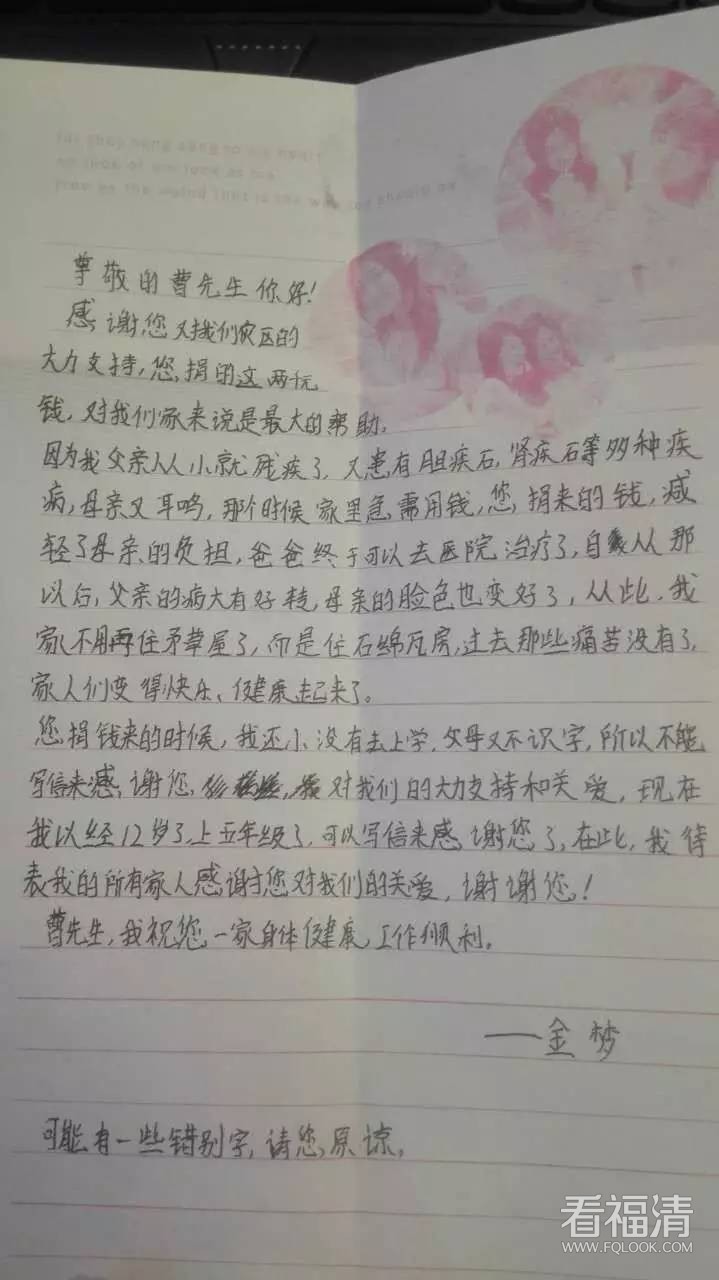 尊敬的曹先生你好!
感谢您对我们灾区的
大力支持,您捐的这两万
钱,对我们家来说是最大的帮助。
因为我父亲从小就残疾了,又患有胆疾石,肾疾石等多种疾
病,母亲又耳鸣,那个时候家里急需用钱,您捐来的钱,减
轻了母亲的负担,爸爸终于可以去医院治疗了,自从那
以后,父亲的病大有好转,母亲的脸色也变好了,从此,我
家不用再住矛草屋了,而是住石绵瓦房,过去那些痛苦没有了,
家人们变得快乐、健康起来了。
您捐钱来的时候,我还小没有去上学,父母又不识字,所以不能
写信来感谢您 对我们的大力支持和关爱,现在
我以经12岁了,上五年级了,可以写信来感谢您了,在此,我待
表我的所有家人感谢您对我们的关爱,谢谢您!
曹先生,我祝您一家身体健康,工作顺利。
——金梦
可能有一些错别字,请您原谅。
看福清
WWW.FQLOOK.COM